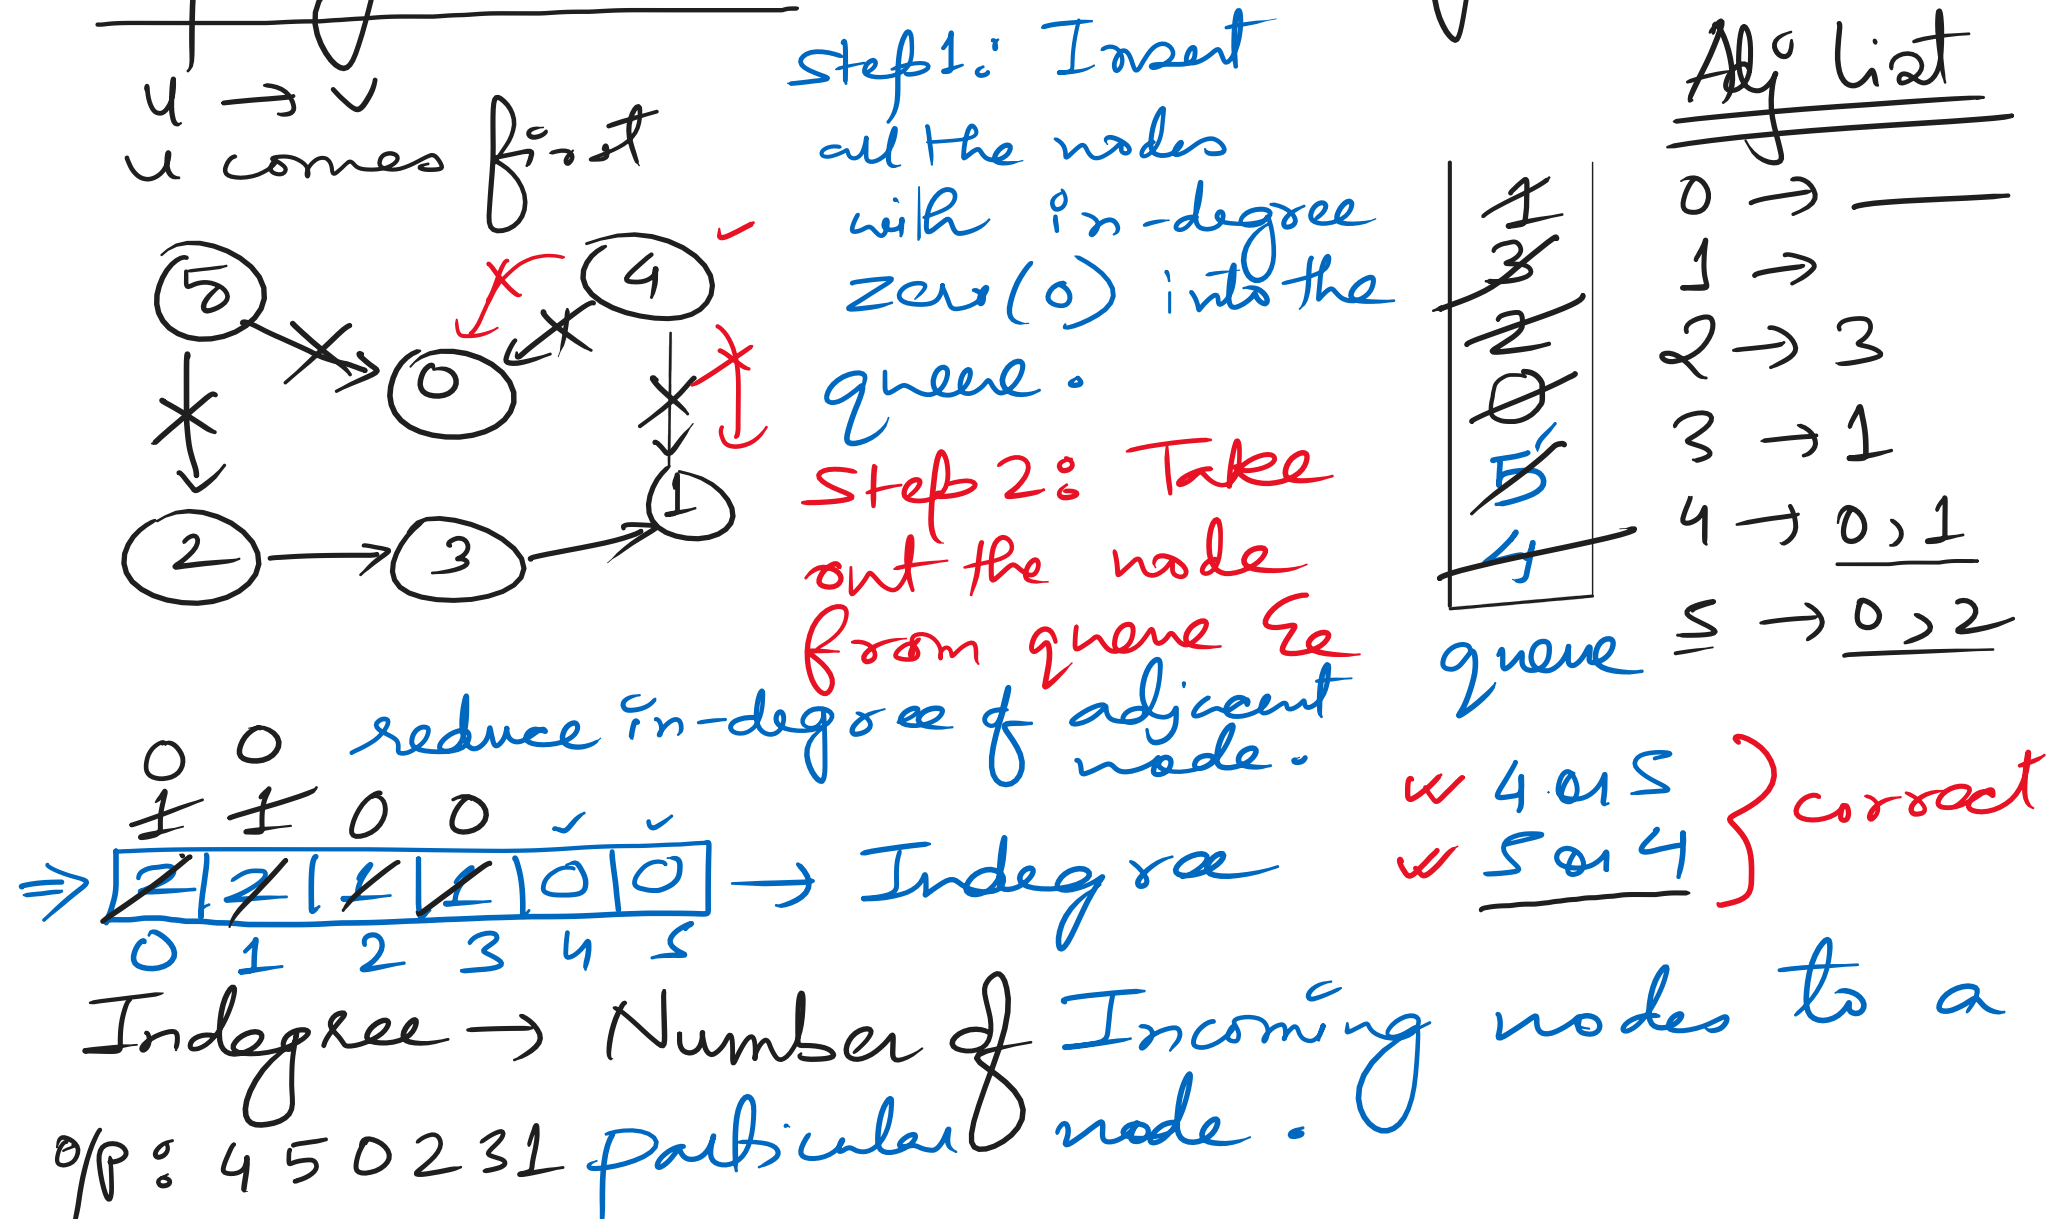 u → v
u comes first
step1: Insert
all the nodes
with in-degree
zero(0) into the
queue.
step2: Take
out the node
from queue &
reduce in-degree of adjacent
node.
5
4
0
1
2
3
1
3
2
0
5
4
queue
Adj List
0 →
1 →
2 → 3
3 → 1
4 → 0, 1
5 → 0, 2
4 or 5
5 or 4
correct
0 0
1 1 0 0
⇒ 2 2 1 1 0 0 → Indegree
0 1 2 3 4 5
Indegree → Number of Incoming nodes to a
particular node.
o/p: 4 5 0 2 3 1